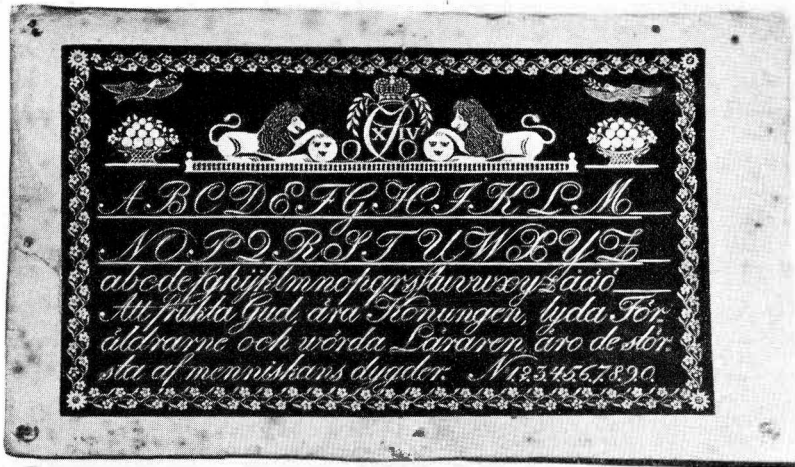 XIV
A B C D E F G H I K L M
N O P Q R S T U W X Y Z
abcdefghijklmnopqrsstuvwxyzåäö
Att frukta Gud, ära Konungen, lyda För
äldrarne och wörda Läraren, äro de stör
sta af menniskans dygder. N 1.2.3.4.5.6.7.8.9.0.